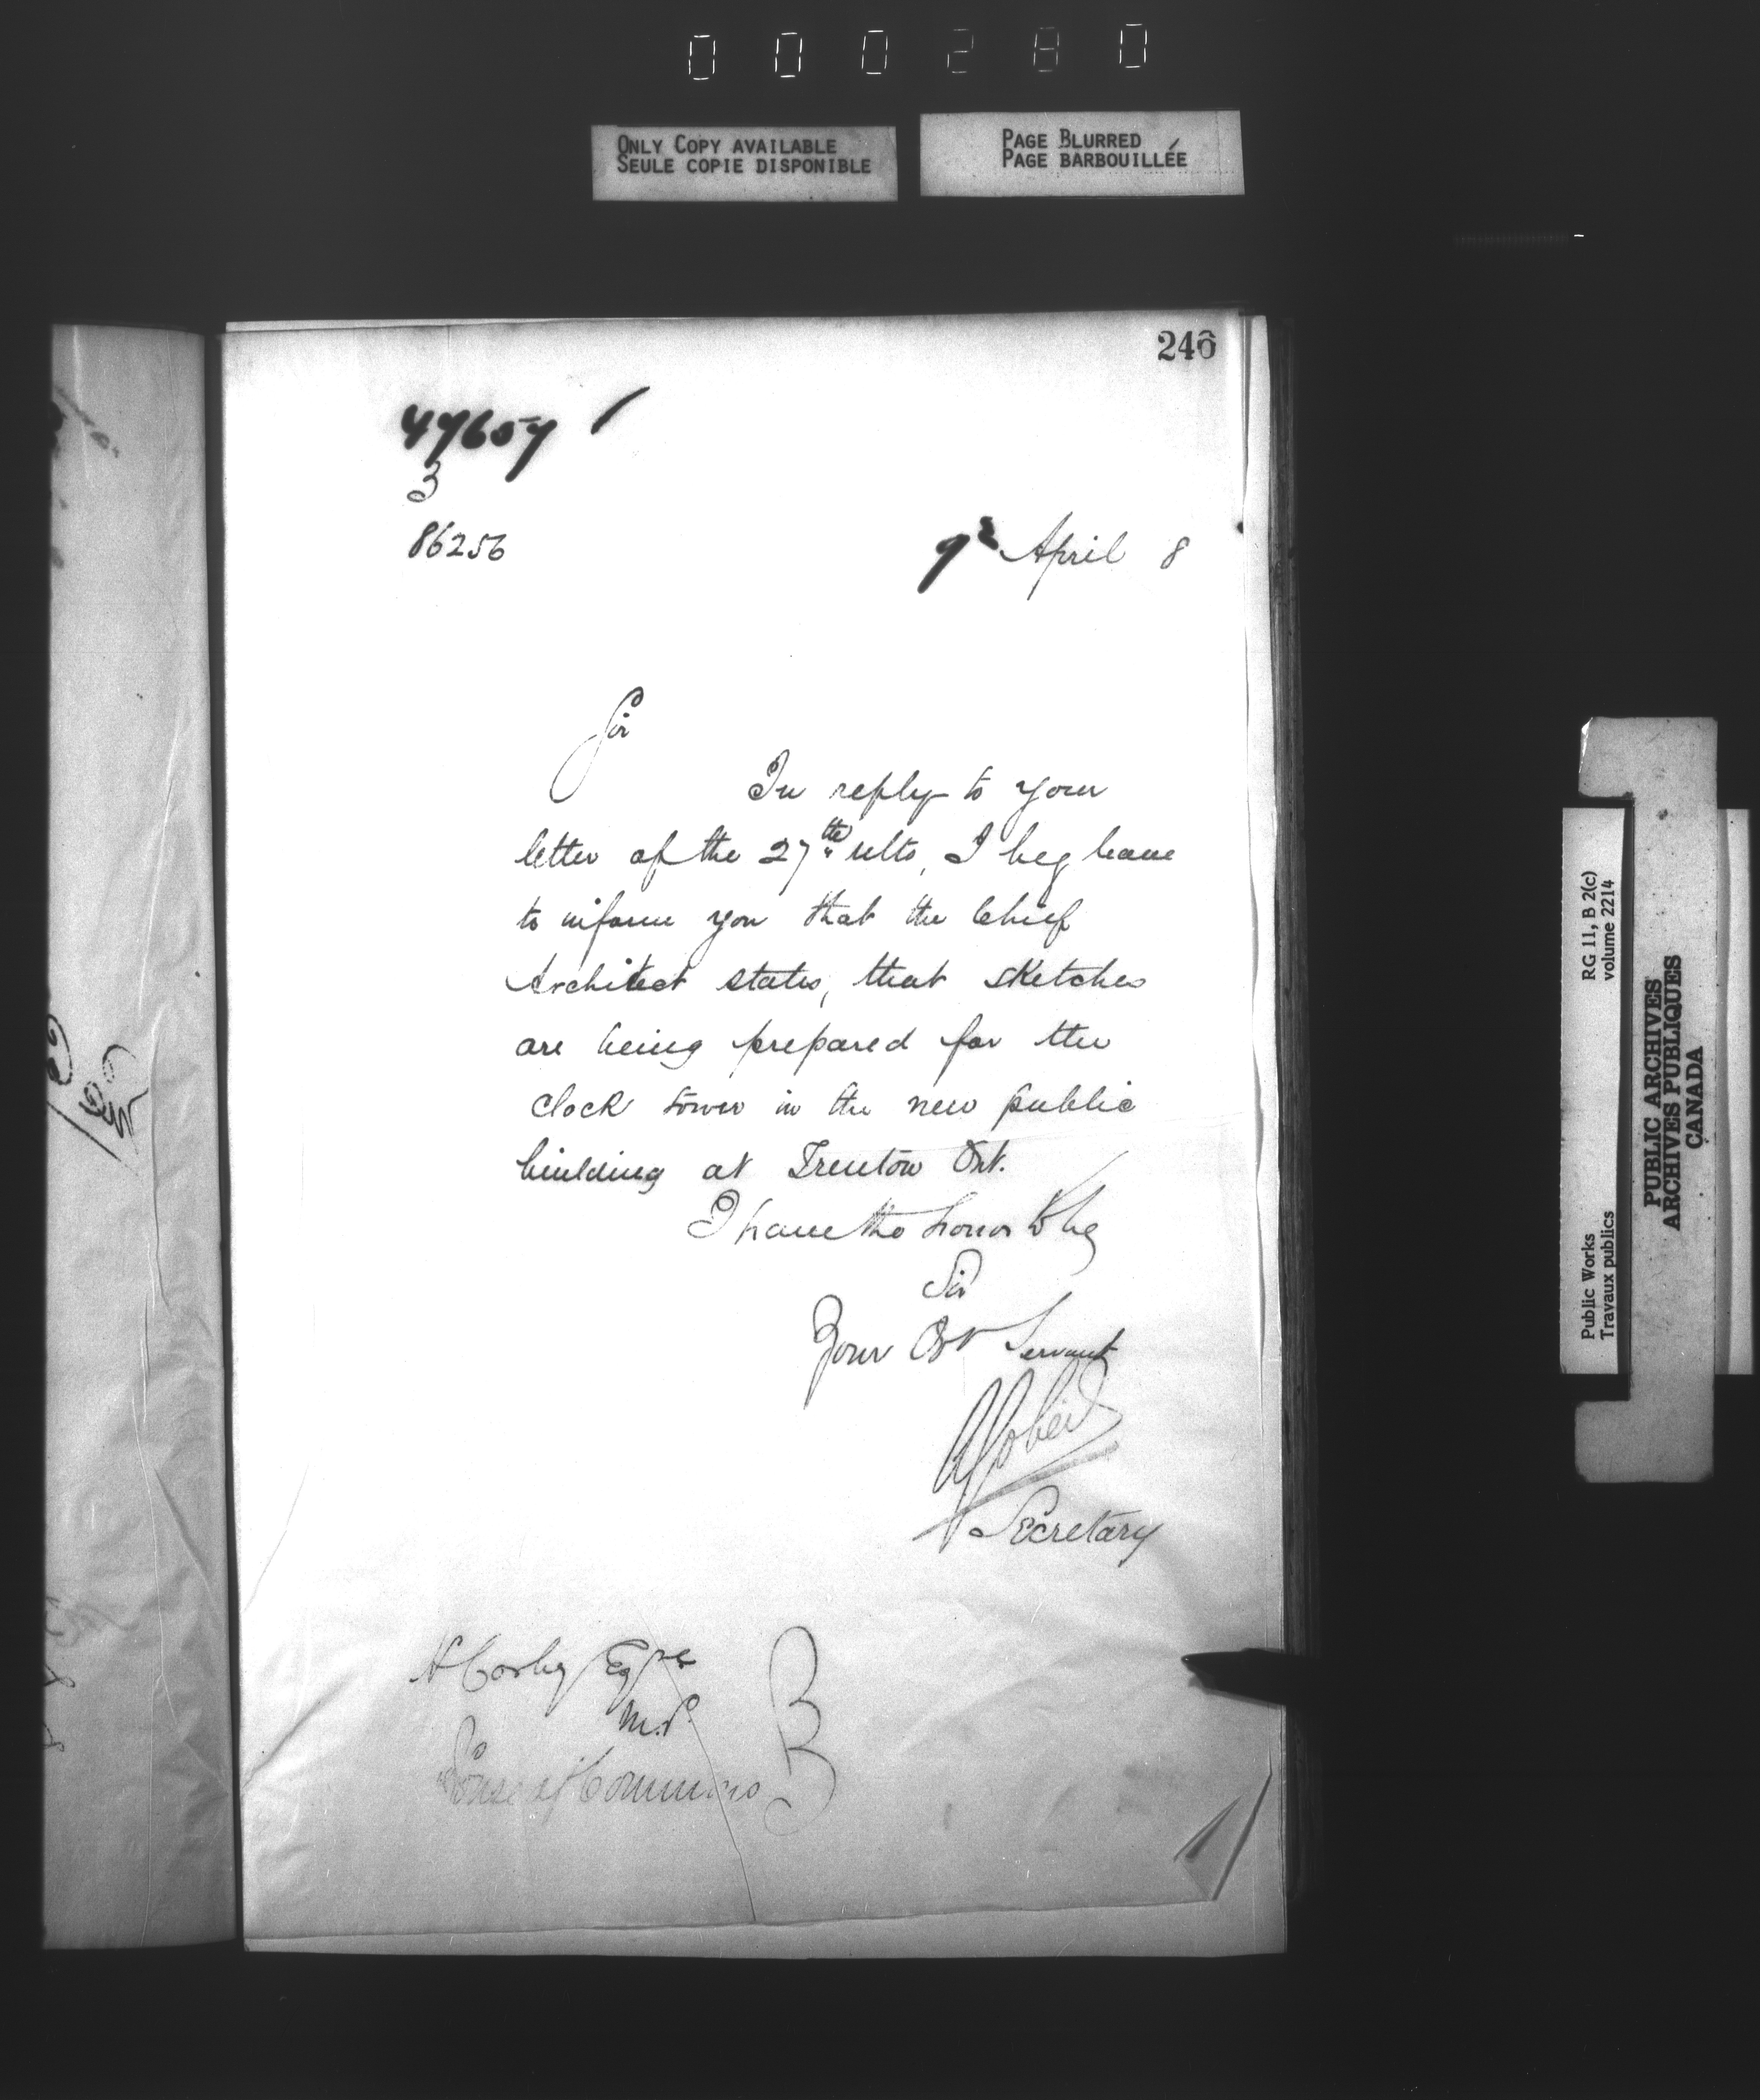 000280
ONLY COPY AVAILABLE
SEULE COPIE DISPONIBLE
PAGE BLURRED
PAGE BARBOUILLÉE
246
47657
3
86256
9 April 8
Sir
In reply to your
letter of the 27th ulto, I beg leave
to inform you that the Chief
Architect states, that sketches
are being prepared for the
clock tower in the new public
building at Trenton Ont.
I have the honor to be
Sir
Your Obt Servant
Secretary
H Corby Esqre
M.P.
House of Commons
B
RG 11, B 2(c)
volume 2214
Public Works
Travaux publics
PUBLIC ARCHIVES
ARCHIVES PUBLIQUES
CANADA